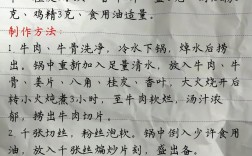 克、鸡精3克、食用油适量。
制作方法
1. 牛肉、牛骨洗净，冷水下锅，焯水后捞
出。锅中重新加入足量清水，放入牛肉、牛
骨、姜片、八角、桂皮、香叶，大火烧开后
转小火慢煮3小时，至牛肉软烂、汤汁浓
郁，捞出牛肉切片。
2. 千张切丝，粉丝泡软。锅中倒入少许食用
油，放入千张丝煸炒片刻，盛出备